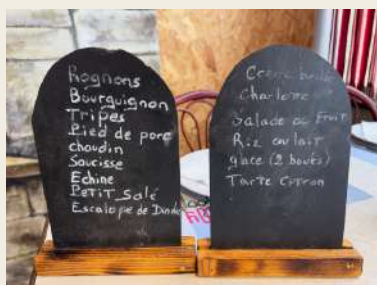 Rognons
Bourguignon
Tripes
Pied de porc
choudin
Saucisse
Echine
PETIT Salé
Escalope de Dinde
Creme brulé
Charlotte
Salade de Fruit
Riz au lait
glace (2 boules)
Tarte Citron